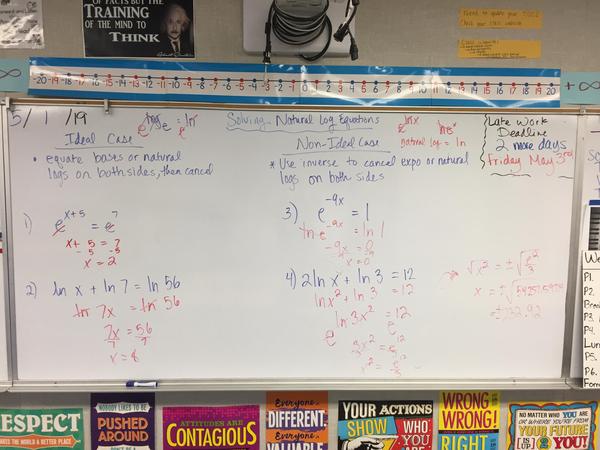 OF FACTS BUT THE
TRAINING
OF THE MIND TO
THINK
-20 -19 -18 -17 -16 -15 -14 -13 -12 -11 -10 -9 -8 -7 -6 -5 -4 -3 -2 -1 0 1 2 3 4 5 6 7 8 9 10 11 12 13 14 15 16 17 18 19 20
∞
+∞
5/1/19
Solving Natural Log Equations
Ideal Case
• equate bases or natural
logs on both sides, then cancel
1) e^(x+5) = e^7
x + 5 = 7
-5 -5
x = 2
2) ln x + ln 7 = ln 56
ln 7x = ln 56
7x = 56
7 7
x = 8
Non-Ideal Case
* Use inverse to cancel expo or natural
logs on both sides
natural log = ln
3) e^(-9x) = 1
ln e^(-9x) = ln 1
-9x = 0
x = 0
4) 2 ln x + ln 3 = 12
ln x² + ln 3 = 12
ln 3x² = 12
e e
3x² = e^12
√x² = ±√(e^12/3)
Late Work
Deadline
2 more days
Friday May 3rd
P1.
P2.
P3.
P5.
P6.
RESPECT
MAKES THE WORLD A BETTER PLACE
NOBODY LIKES TO BE
PUSHED
AROUND
ATTITUDES ARE
CONTAGIOUS
Everyone is
DIFFERENT.
Everyone is
VALUABLE
YOUR ACTIONS
SHOW WHO
YOU
WRONG IS
WRONG!
RIGHT
NO MATTER WHO YOU ARE
OR WHERE YOU'RE FROM
YOUR FUTURE
IS UP 2 YOU!